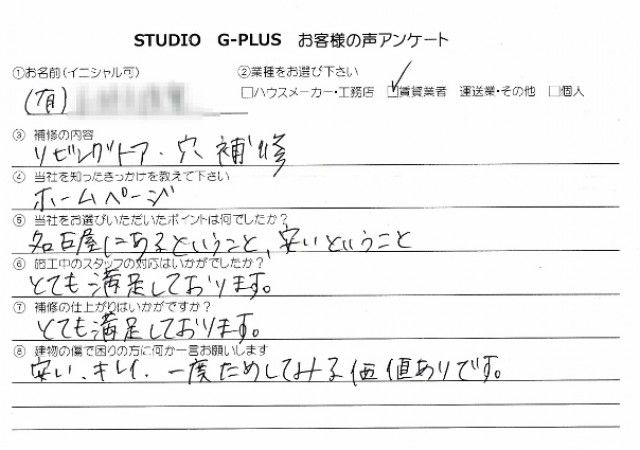 STUDIO G-PLUS お客様の声アンケート
①お名前(イニシャル可) ②業種をお選び下さい
(有) □ハウスメーカー・工務店 ☑賃貸業者 運送業・その他 □個人
③ 補修の内容
リビングドア・穴補修
④ 当社を知ったきっかけを教えて下さい
ホームページ
⑤ 当社をお選びいただいたポイントは何でしたか?
名古屋にあるということ、安いということ
⑥ 施工中のスタッフの対応はいかがでしたか?
とても満足しております。
⑦ 補修の仕上がりはいかがですか?
とても満足しております。
⑧ 建物の傷で困りの方に何か一言お願いします
安い、キレイ、一度ためしてみる価値ありです。